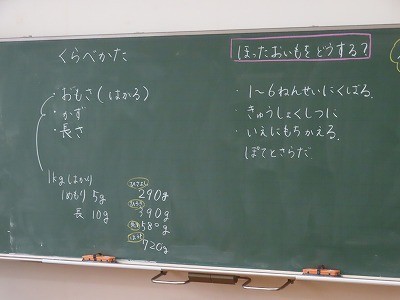 くらべかた
・おもさ(はかる)
・かず
・長さ
1kgはかり
1めもり 5g
長 10g
290g
390g
580g
720g
ほったおいもをどうする?
・1〜6ねんせいにくばる。
・きゅうしょくしつに
・いえにもちかえる。
ぽてとさらだ